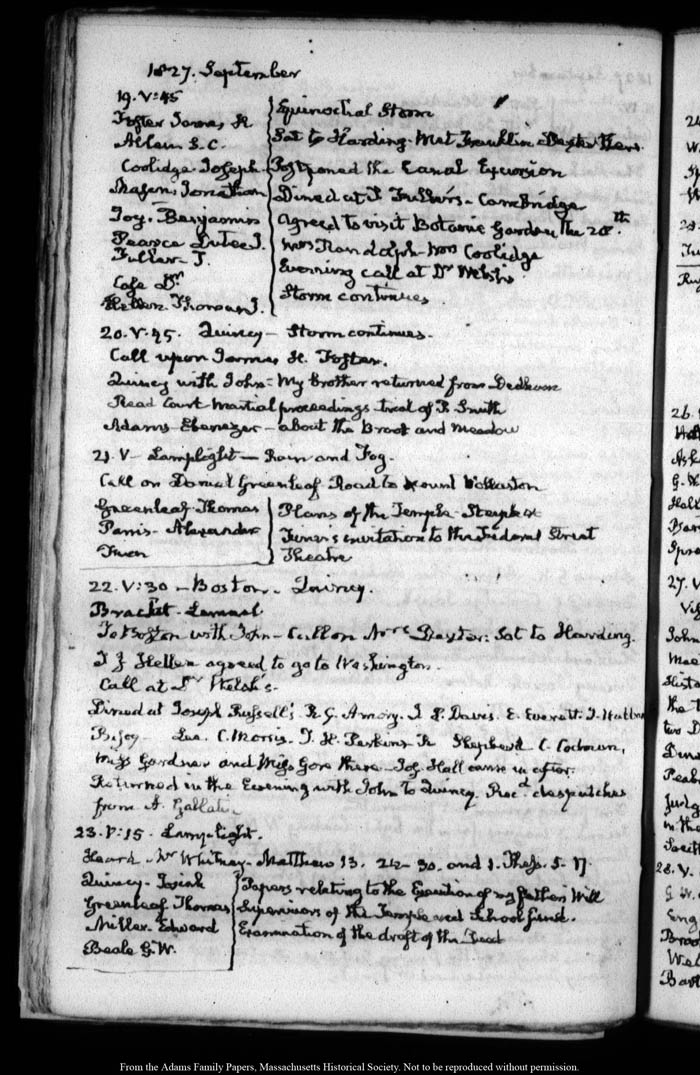 1827. September
19. V:45
Foster James H
Allein S. C.
Coolidge Joseph
Mason Jonathan
Joy. Benjamin
Pearce Dutee J.
Fuller T.
Cafe Dr.
Hellen Thomas J.
Equinoctial Storm
Sat to Harding. Met Franklin Dexter there.
Postponed the Canal Excursion
Dined at T Fuller's - Cambridge
Agreed to visit Botanic Garden the 28th.
Mrs Randolph. Mrs Coolidge
Evening call at Dr Welsh's
Storm continues
20. V.45. Quincy - Storm continues.
Call upon James H. Foster.
Quincy with John - My brother returned from Dedham
Read Court Martial proceedings trial of Smith
Adams Ebenezer - about the Brook and Meadow
21. V - Lamplight - Rain and Fog.
Call on Daniel Greenleaf Road to Mount Wollaston
Greenleaf Thomas
Parris Alexander
Plans of the Temple
invitation to the Federal Street
Theatre
22. V:30 - Boston. Quincy.
Bracket. Lemuel
To Boston with John - Call on Mrs Dexter: Sat to Harding.
T J Hellen agreed to go to Washington.
Call at Dr Welsh's.
Dined at Joseph Russell's R. G. Amory. I P. Davis. E. Everett.
Lee. C. Morris. T. H. Perkins Shepherd C. Cochran,
Miss Gardner and Miss Gore there. Jos. Hall came in after.
Returned in the Evening with John to Quincy. Recd. despatches
from A. Gallatin.
23. V:15. Lamplight.
Heard Mr Whitney - Matthew 13. 24-30. and 1. Thess. 5. 17.
Quincy - Josiah
Greenleaf Thomas
Miller Edward
Beale G. W.
Papers relating to the Execution of my father's Will
Supervisors of the Temple and School fund.
Examination of the draft of the Deed
From the Adams Family Papers, Massachusetts Historical Society. Not to be reproduced without permission.